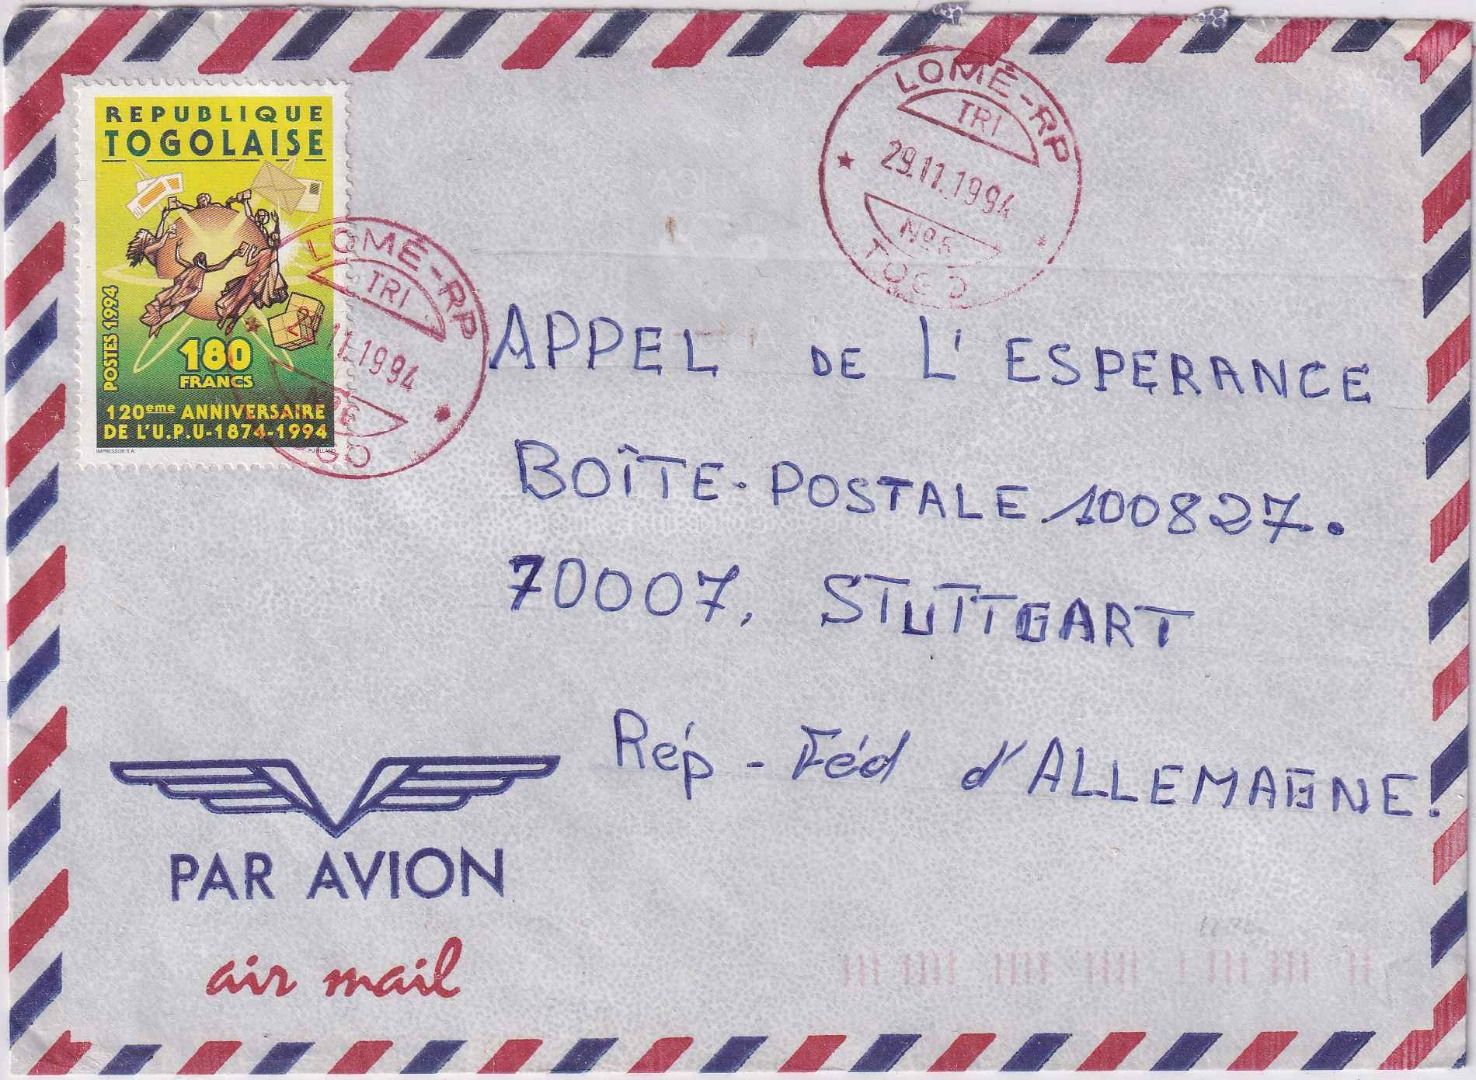 REPUBLIQUE
TOGOLAISE
POSTES 1994
180
FRANCS
120eme ANNIVERSAIRE
DE L'U.P.U-1874-1994
LOMÉ-RP
TRI
11.1994
LOMÉ-RP
TRI
29.11.1994
TOGO
APPEL DE L'ESPERANCE
BOÎTE-POSTALE 100827.
70007, STUTTGART
Rép-Féd d'ALLEMAGNE.
PAR AVION
air mail